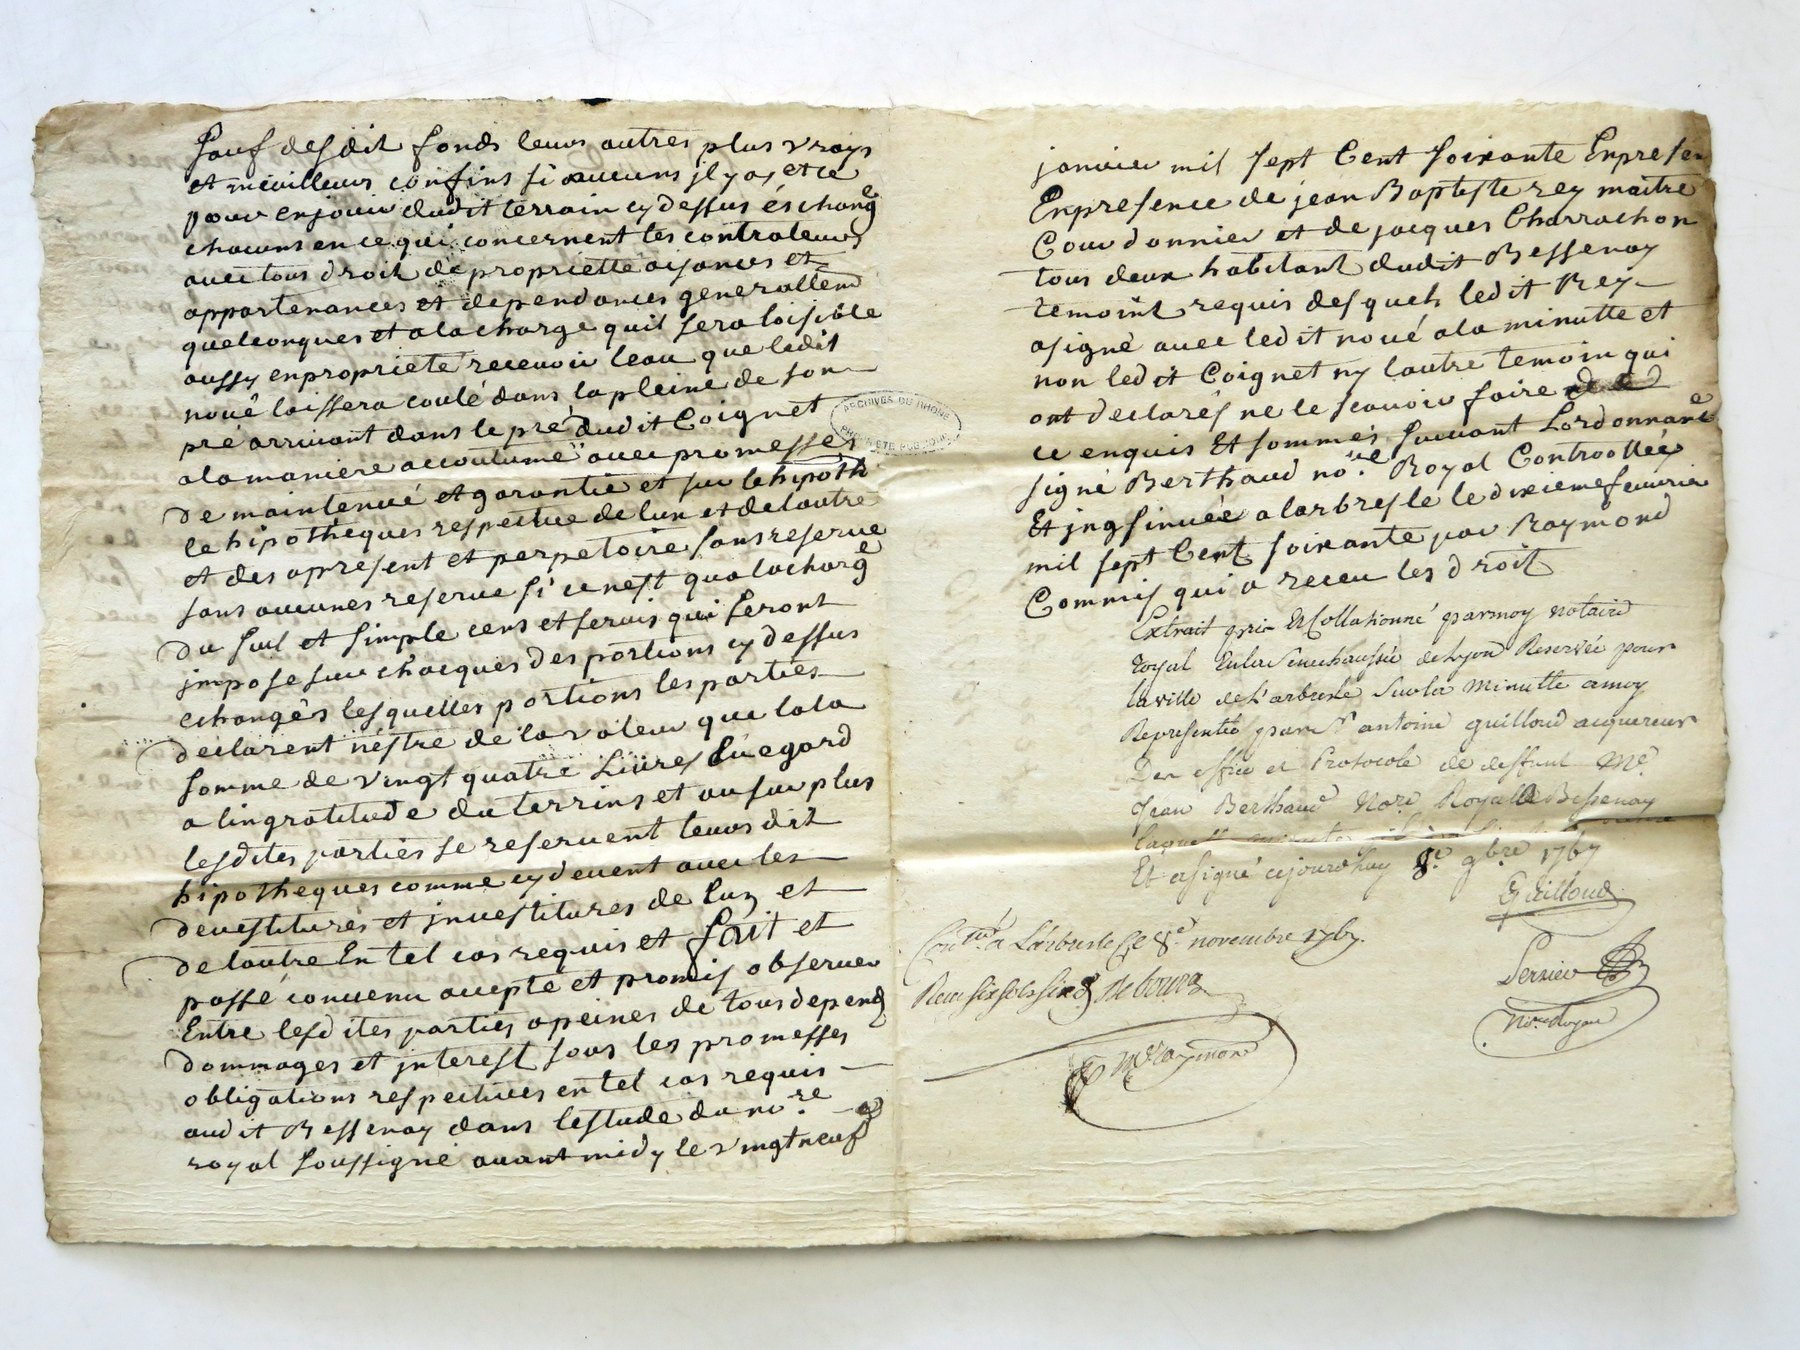 Sauf desdit fonds leurs autres plus vrays
et meuilleurs confins si aucuns jl y as et ce
pour en jouir dudit terrain cy dessus éschangé
chacuns en ce qui concernent les contrateurs
avec tous droit de proprietté aysances et
appartenances et dependances generallem
quelconques et a la charge quil sera loisible
aussy en proprieté recevoir leau que ledit
noué laissera coulé dans la pleine de son
pré arrivant dans le pré dudit Coignet
a la maniere accoutumé avec promesses
de maintenué et garantie et sur lehipoth
le hipotheques respective de lun et de lautre
et des apresent et perpetoire sans reserve
sans aucunes reserve si ce nest qua la chargé
du seul et simple cens et servis qui seront
jmposé sur chacques des portions cy dessus
echangés lesquelles portions les parties
declarent nêstre de la valeur que la la
somme de vingt quatre Livres En egard
a lingratitude du terrins et au sur plus
lesdites parties se reservent leurs dit
hipotheques comme cy devent avec les
devestitures et jnvestitures de lun et
de lautre En tel cas requis et fait et
passé convenu accepté et promis observer
Entre lesdites parties a peines de tous depends
dommages et jnterest sous les promesses
obligations respectives en tel cas requis
audit Bessenay dans lestude du no.re
royal soussigné avant midy le vingt neuf
janvier mil sept Cent soixante Enpresen
Enpresence de jean Baptiste rey maitre
Courdonnier et de jacques Charrachon
tous deux habitant dudit Bessenay
temoint requis desquels ledit Rey
a signé avec ledit noué a la minutte et
non ledit Coignet ny lautre temoin qui
ont declarés ne le scavoir faire
ce enquis Et sommés suivant Lordonnance
signé Berthaud no.re Royal Controollée
Et jngsinuée a larbresle le dixieme fevrier
mil sept Cent soixante par Raymond
Commis qui a receu les droit
Extrait pris Et Collationné par moy notaire
royal En la Seneehaussée de Lyon Reservée pour
la ville de L'arbresle Sur la Minutte a moy
Representée par Sr antoine guilloud acquereur
Des office et Protocole de deffunt Me.
Jean Berthaud Nore. Royal a Bessenay
laquelle
Et a signé cejourdhuy 8e. 9bre 1767
Guilloud
Contrlé a Larbresle Ce 8e. novembre 1767.
Recu six sols six d
Raymond
nore. Royal
ARCHIVES DU RHONE
PROPRIÉTÉ PUBLIQUE